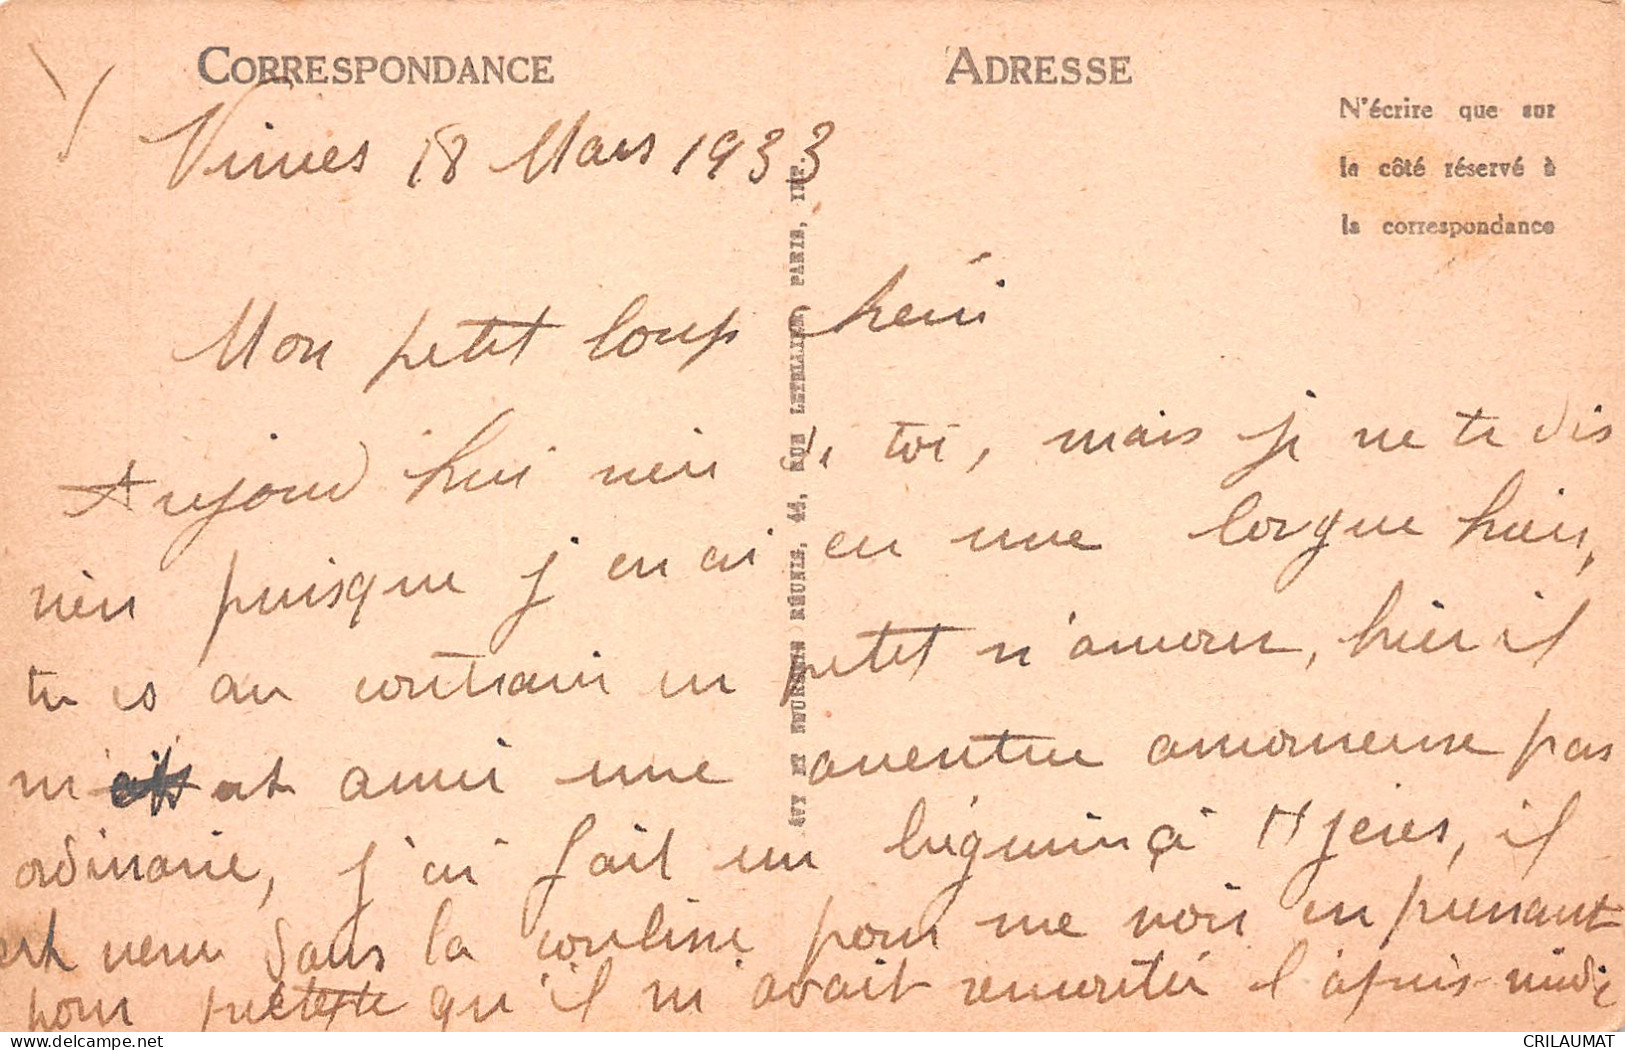 CORRESPONDANCE
ADRESSE
N'écrire que sur
le côté réservé à
la correspondance
LÉVY ET NEURDEIN RÉUNIS, 44, RUE LETELLIER, PARIS, IMP.
Nimes 18 Mars 1933
Mon petit loup chéri
Aujourd'hui rien de toi, mais je ne te dis
rien puisque j'en ai eu une longue hier,
tu es au contraire un petit n'amour, hier il
m'est arrivé une aventure amoureuse pas
ordinaire, j'ai fait un béguin à Hyères, il
est venu dans la coulisse pour me voir en prenant
pour prétexte qu'il m'avait rencontré l'après-midi
delcampe.net
CRILAUMAT